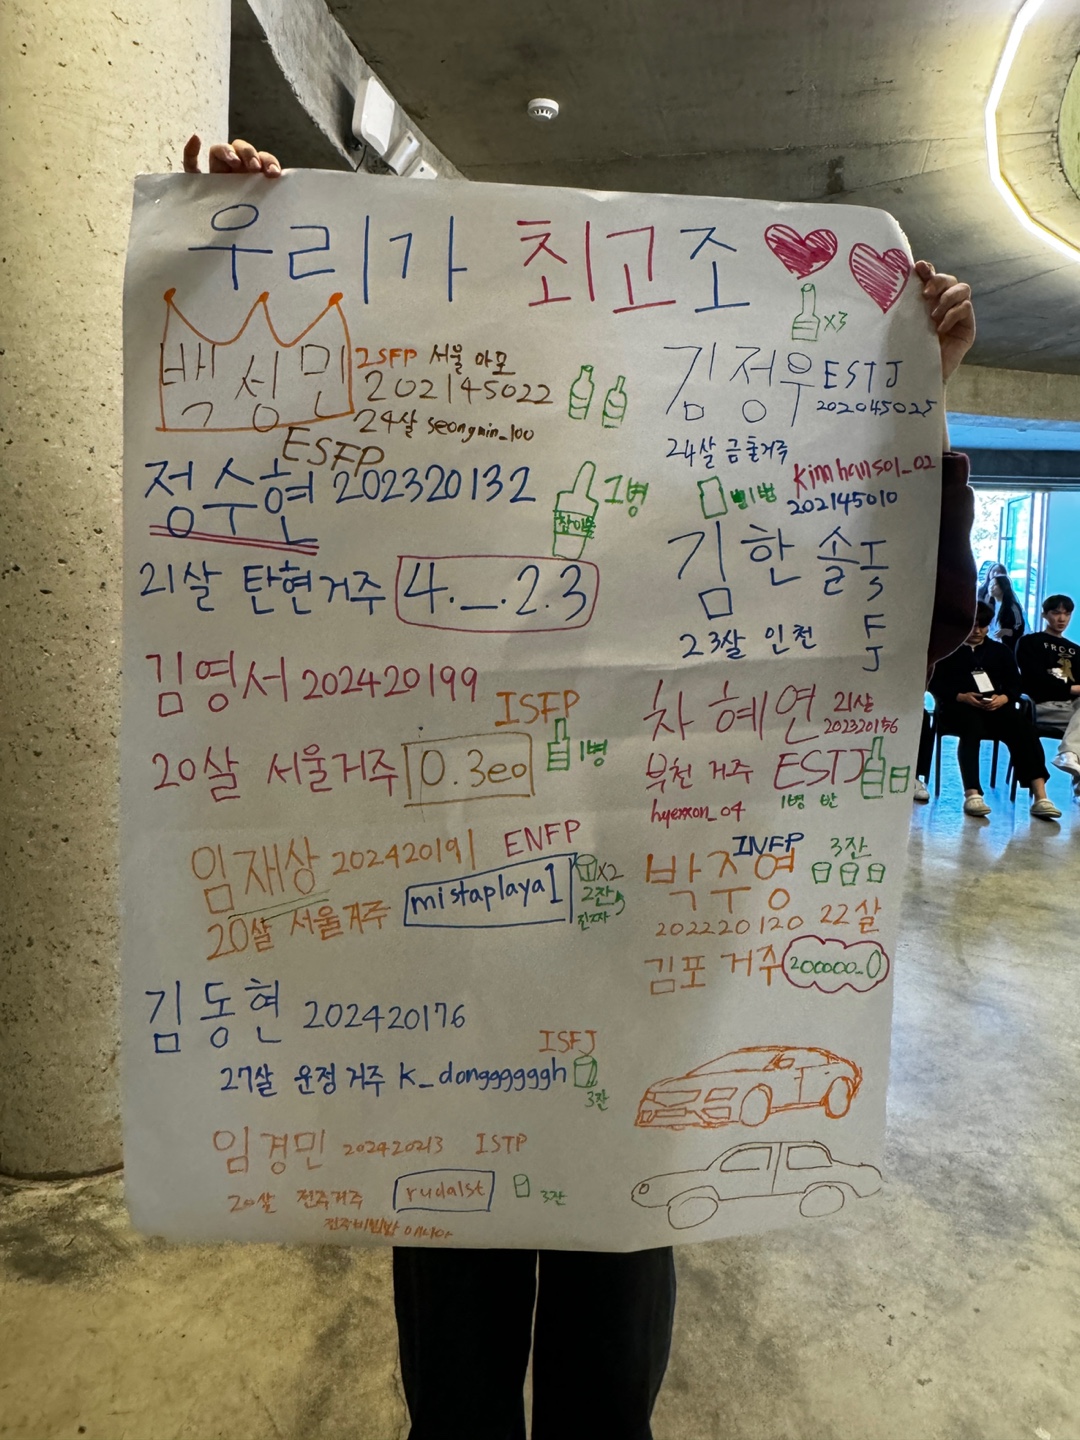 우리가 최고조
백성민 ISFP 서울 마포
202145022
24살 seongmin_100
정수현 ESFP 202320132
참이슬 1병
21살 탄현거주 4._.2.3
김영서 202420199
ISFP
20살 서울거주 0.3eo 1병
임재상 202420191 ENFP
20살 서울거주 mistaplaya1 x2
2잔
김동현 202420176
ISFJ
27살 운정 거주 k_donggggggh
3잔
임경민 202420213 ISTP
20살 전주거주 rudalst 3잔
전주비빔밥 매니아
x3
김정우 ESTJ
202045025
24살 금촌거주
1병 kimhansol_02
202145010
김한솔 ISFJ
23살 인천
차혜연 21살
202320156
부천 거주 ESTJ
hyexxon_04 1병 반
박주영 INFP 3잔
202220120 22살
김포 거주 200000_0
FROG